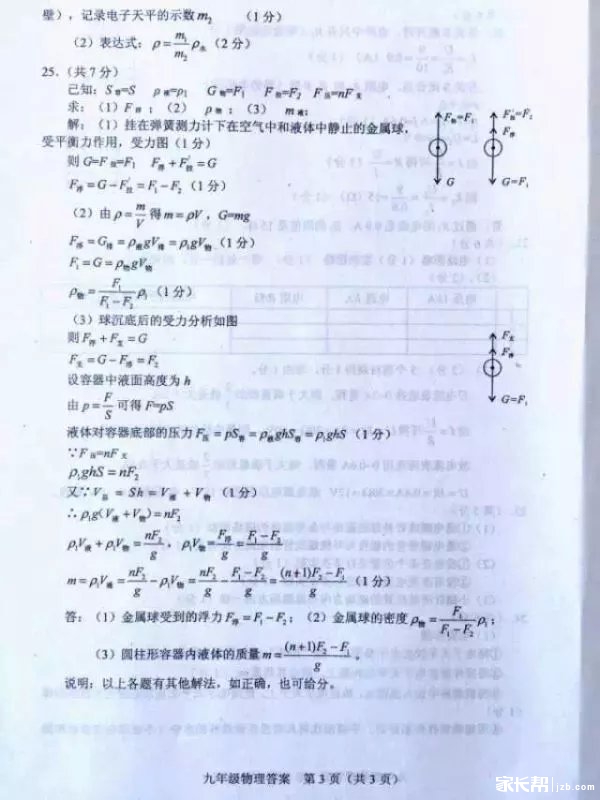 壁），记录电子天平的示数m₂ （1分）
（2）表达式：ρ=m₁/m₂ ρ水（2分）
25.（共7分）
已知：S容=S ρ液=ρ₁ G物=F₁ F拉=F₂ F压=nF支
求：（1）F浮；（2） ρ物；（3） m液；
解：（1）挂在弹簧测力计下在空气中和液体中静止的金属球，
受平衡力作用，受力图（1分）
则 G=F拉=F₁ F浮+F′拉=G
F浮=G−F′拉=F₁−F₂（1分）
F拉=F₁
G
F′拉=F₂
F浮
G=F₁
（2）由 ρ=m/V 得 m=ρV，G=mg
F浮=G排=ρ液gV排=ρ₁gV物（1分）
F₁=G=ρ物gV物
ρ物=F₁/(F₁−F₂) ρ₁（1分）
（3）球沉底后的受力分析如图
则F浮+F支=G
F支=G−F浮=F₂
F支
F浮
G=F₁
设容器中液面高度为 h
由 p=F/S 可得 F=pS
液体对容器底部的压力F压=pS容=ρ液ghS容=ρ₁ghS（1分）
∵F压=nF支
ρ₁ghS=nF₂
又∵V总=Sh=V液+V物（1分）
∴ρ₁g(V液+V物)=nF₂
ρ₁V液+ρ₁V物=nF₂/g，ρ₁V物=F浮/g=(F₁−F₂)/g
m=ρ₁V液=nF₂/g−ρ₁V物=nF₂/g−(F₁−F₂)/g=((n+1)F₂−F₁)/g（1分）
答：（1）金属球受到的浮力F浮=F₁−F₂；（2）金属球的密度ρ物=F₁/(F₁−F₂) ρ₁；
（3）圆柱形容器内液体的质量m=((n+1)F₂−F₁)/g。
说明：以上各题有其他解法，如正确，也可给分。
九年级物理答案 第3页（共3页）
家长帮 jzb.com